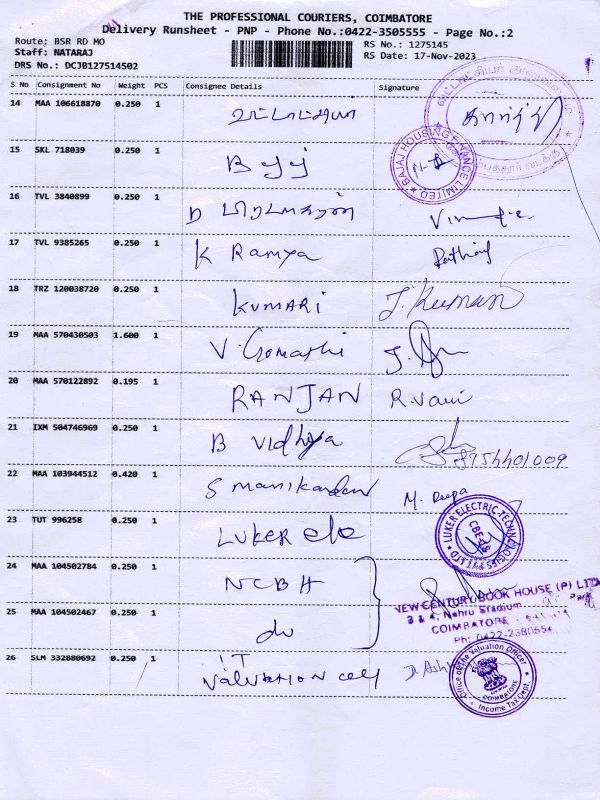 THE PROFESSIONAL COURIERS, COIMBATORE
Delivery Runsheet - PNP - Phone No.:0422-3505555 - Page No.:2
Route: BSR RD MO
RS No.: 1275145
Staff: NATARAJ
RS Date: 17-Nov-2023
DRS No.: DCJB127514502
S No Consignment No Weight PCS Consignee Details Signature
14 MAA 106618870 0.250 1
15 SKL 718039 0.250 1 Bajaj
BAJAJ HOUSING FINANCE LIMITED
16 TVL 3840899 0.250 1 D பிரபாகரன்
17 TVL 9385265 0.250 1 K Ramya
18 TRZ 120038720 0.250 1 KUMARI J. Kumari
19 MAA 570430503 1.600 1 V Gomathi
20 MAA 570122892 0.195 1 RANJAN R. Vani
21 IXM 504746969 0.250 1 B Vidhya
22 MAA 103944512 0.420 1 S manikandan M. Deepa
23 TUT 996258 0.250 1 LUKER ele
LUKER ELECTRIC TECHNOLOGIES PVT LTD CBE-18
24 MAA 104502784 0.250 1 NCBH
NEW CENTURY BOOK HOUSE (P) LTD
3 & 4, Nehru Stadium
25 MAA 104502467 0.250 1 do
COIMBATORE
Ph: 0422-2380554
26 SLM 332880692 0.250 1 IT Valuation cell
Office of the Valuation Officer COIMBATORE Income Tax Dept.